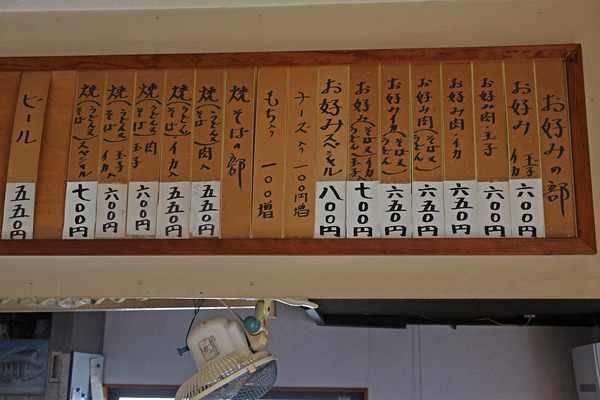 お好みの部
お好み 玉子 イカ 六〇〇円
お好み 肉・玉子 六〇〇円
お好み 肉・イカ 六五〇円
お好み 肉(そば又ハうどん) 六五〇円
お好み イカ(そば又ハうどん) 六五〇円
お好み(そば又ハうどん)玉子、肉入 七〇〇円
お好みスペシャル 八〇〇円
チーズ入り 一〇〇円増
もち入り 一〇〇増
焼そばの部
焼(うどん そば)肉入 五五〇円
焼(うどん そば)イカ入 五五〇円
焼(うどん又ハそば)玉子 肉 六〇〇円
焼(うどん又ハそば)玉子 イカ 六〇〇円
焼(うどん又ハそば)スペシャル 七〇〇円
ビール 五五〇円